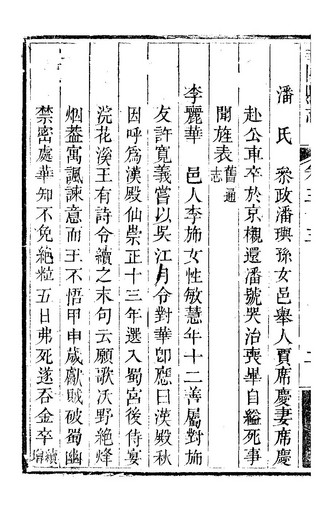 潘氏　叅政潘璵孫女邑舉人賈席慶妻席慶
赴公車卒於京櫬還潘號哭治喪畢自縊死事
聞旌表舊通志
李麗華　邑人李斾女性敏慧年十二善屬對斾
友許寬義嘗以吳江月令對華卽應曰漢殿秋
因呼爲漢殿仙崇正十三年選入蜀宮後侍宴
浣花溪王有詩令續之末句云願歌沃野絶烽
烟葢寓諷諫意而王不悟甲申歲獻賊破蜀幽
禁密處華知不免絶粒五日弗死遂吞金卒續編